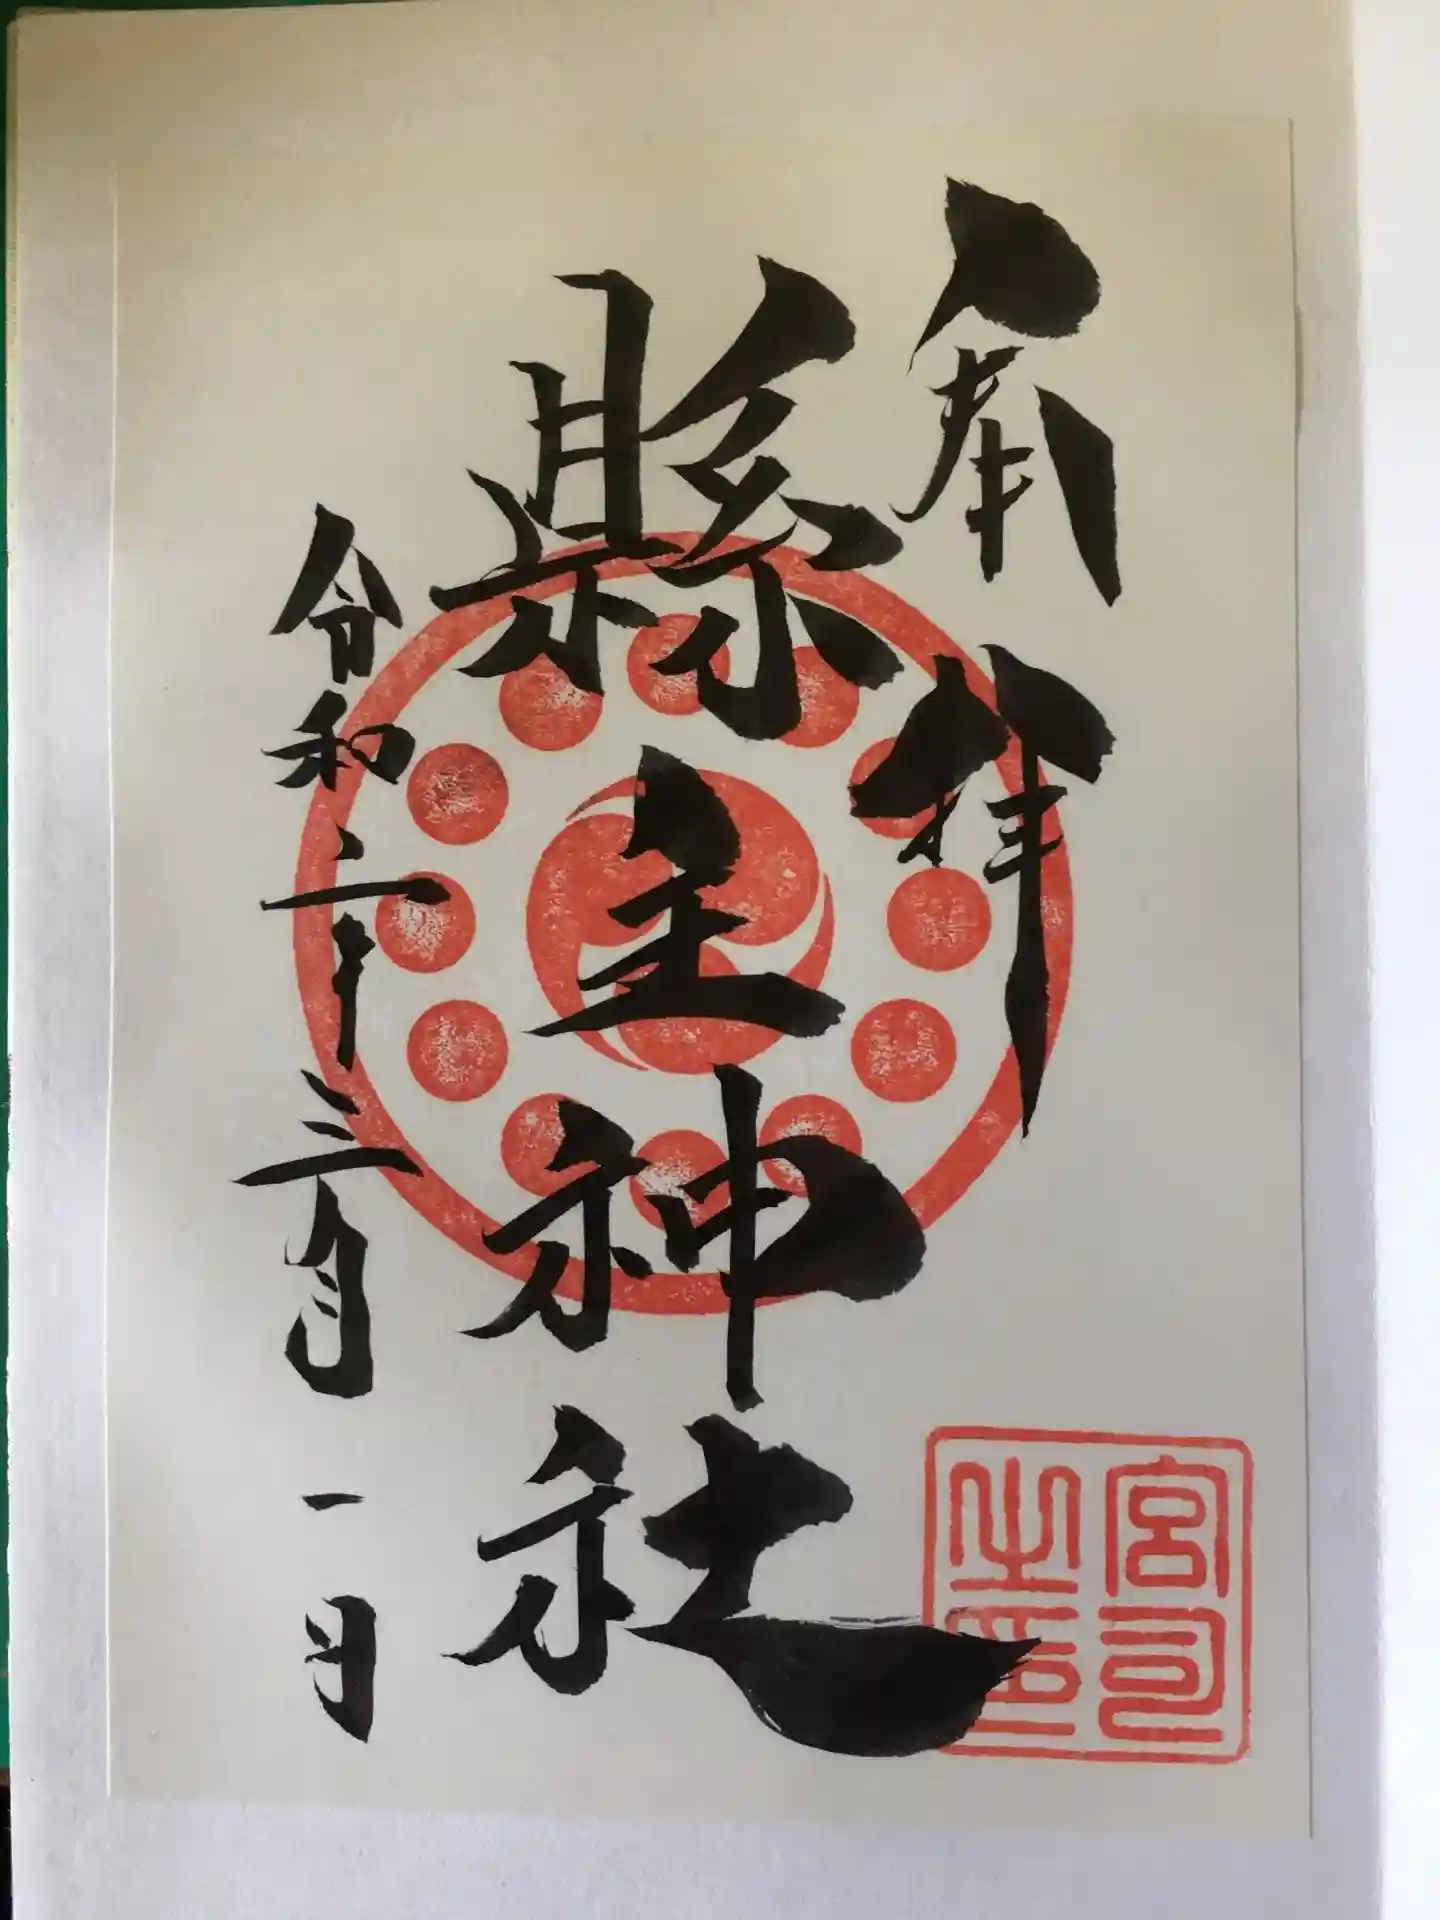 奉拝
縣主神社
令和二年三月一日
宮司之印